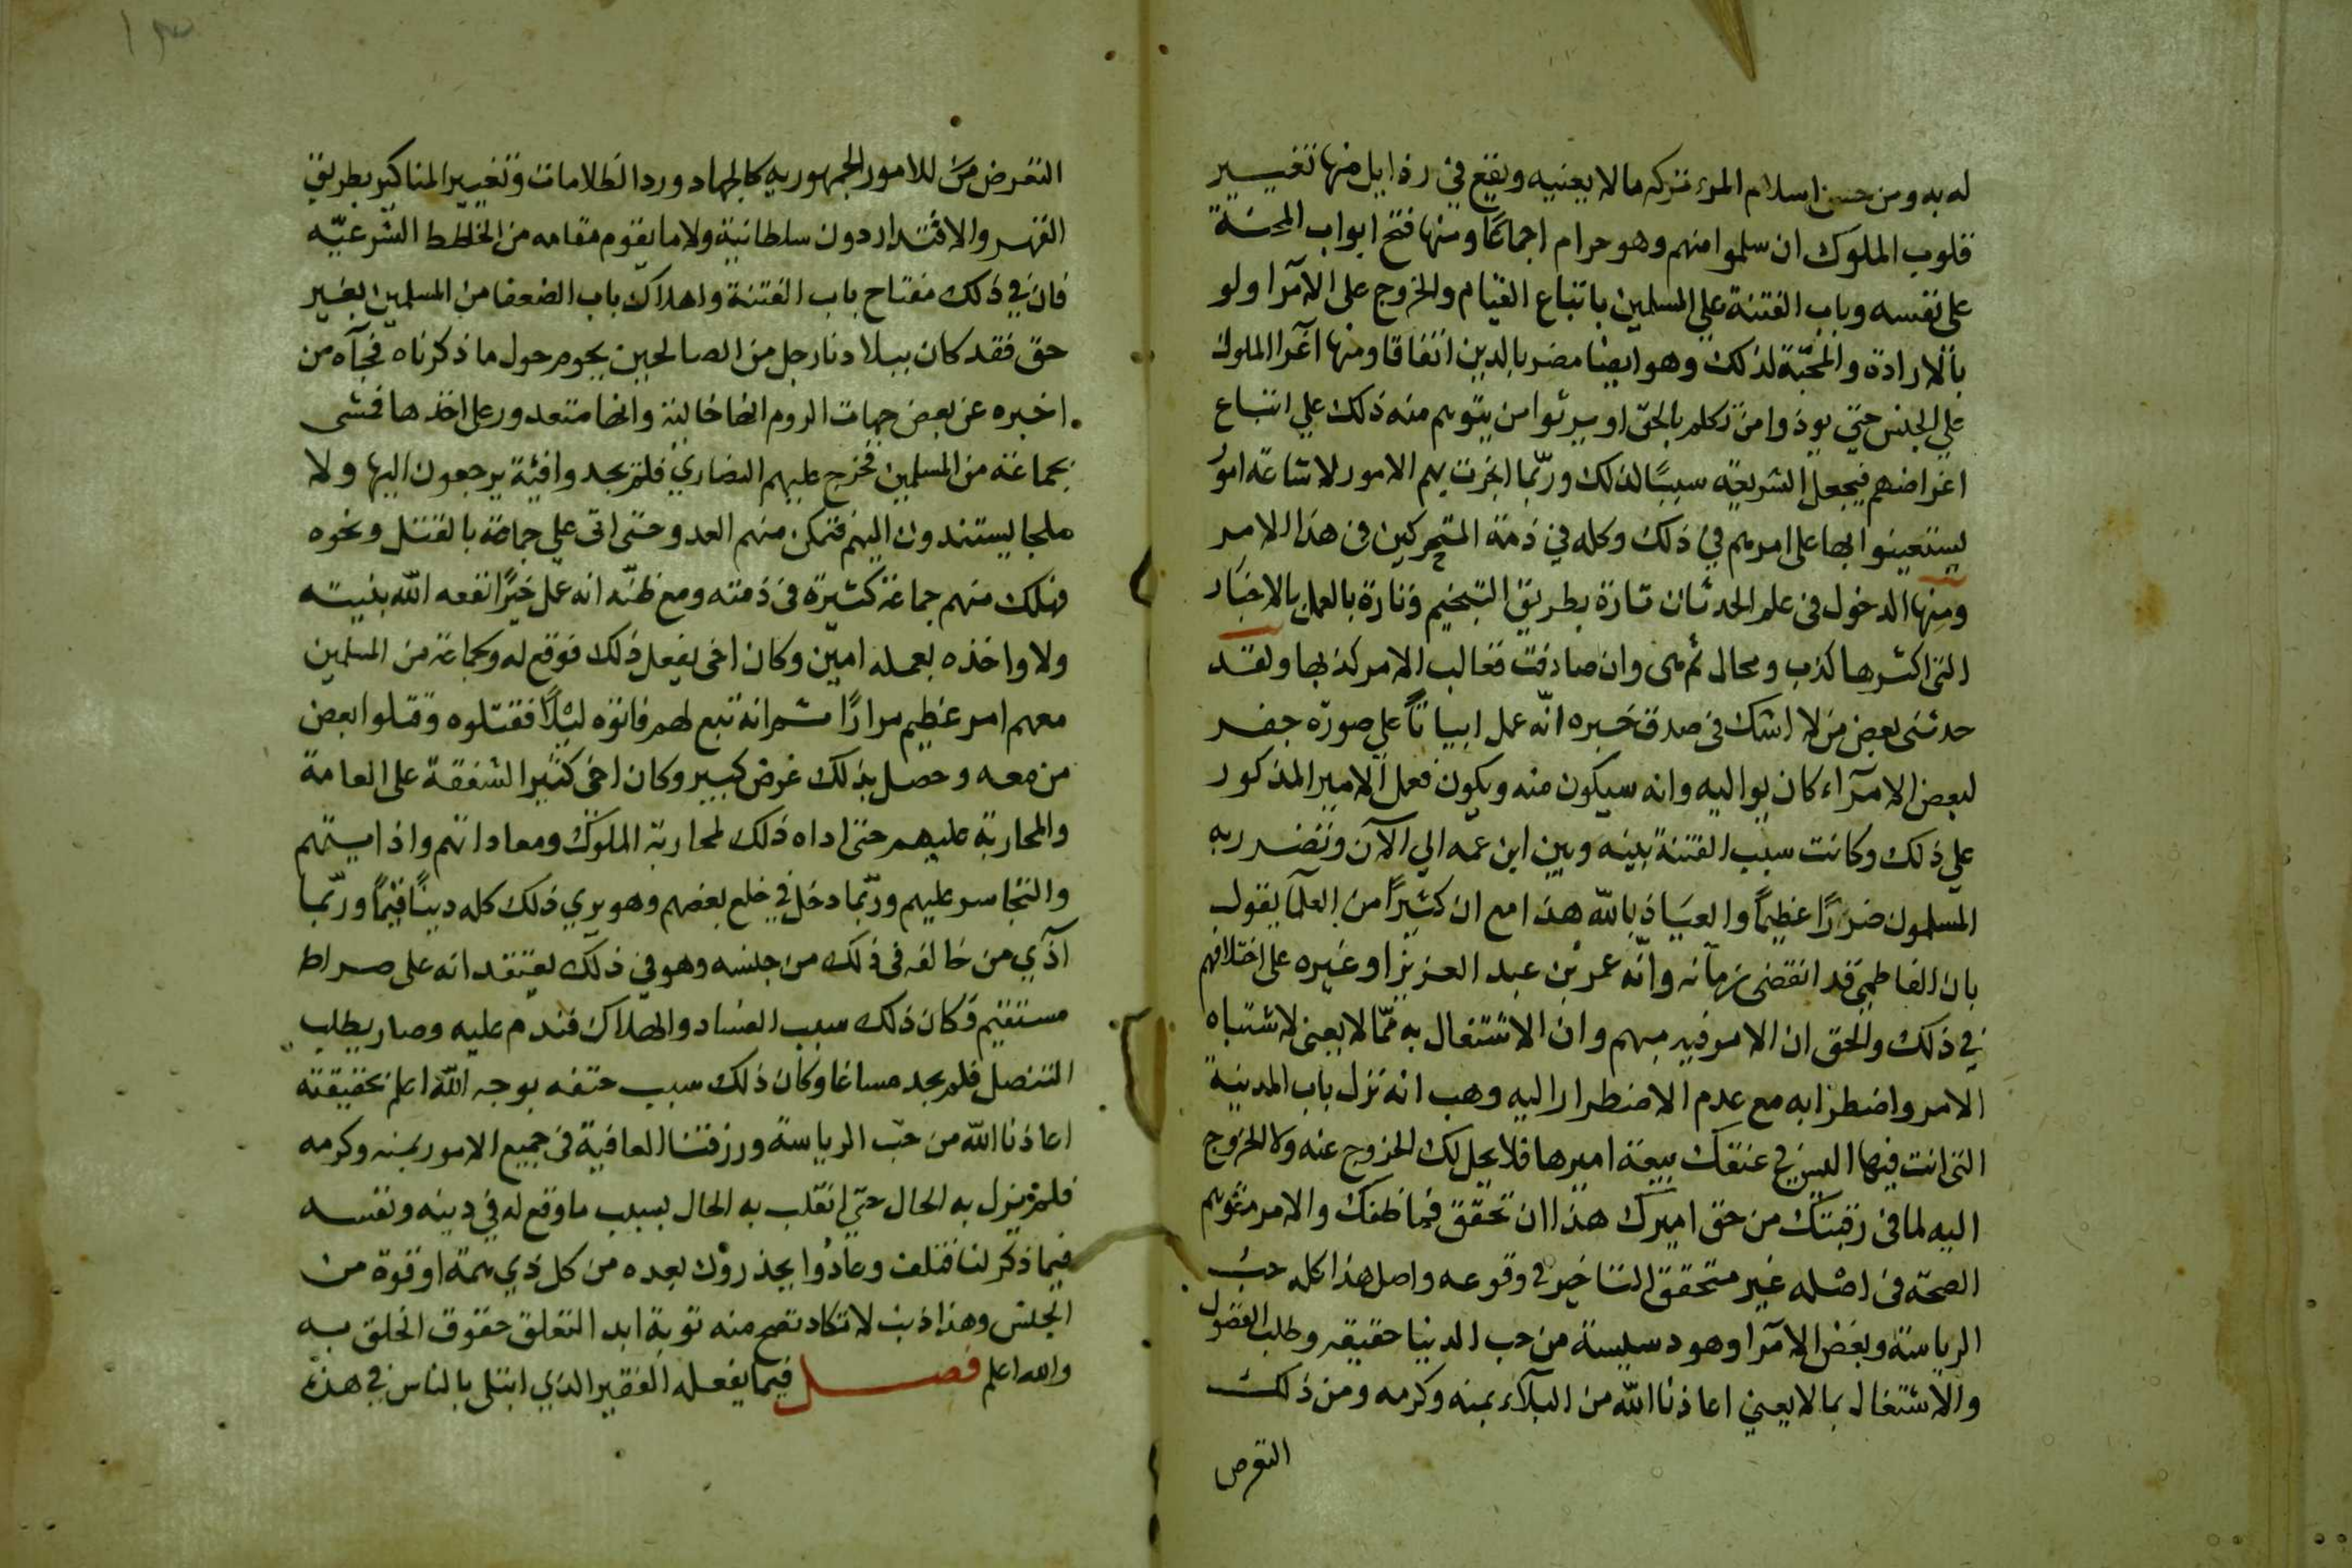 له به ومن حسن اسلام المرء تركه مالا يعنيه ويقع في رذايل منها تغيير
قلوب الملوك ان سلموا منهم وهو حرام اجماعًا ومنها فتح ابواب المحنة
على نفسه وباب الفتنة علي المسلمين باتباع القيام والخروج على الامرا ولو
بالارادة والمحبّة لذلك وهو ايضا مضر بالدين اتفاقا ومنها اغرا الملوك
علي الجنس حتي يوذوا من تكلم بالحق او يبرئوا من يتوهم منه ذلك علي اتباع
اغراضهم فيجعل الشريعة سببًا لذلك وربّما انجرت بهم الامور لاشاعة امور
ليستعينوا بها على امرهم في ذلك وكله في ذمة المتحركين في هذا الامر
ومنها الدخول في علم الحدثان تارة بطريق التنجيم وتارة بالعمل بالاخبار
التي اكثرها كذب ومحال ثم هي وان صادفت فغالب الامر كذبها ولقد
حدثني بعض من لا اشك في صدق خبره انّه عمل ابياتاً علي صورة جفر
لبعض الامرآء كان يواليه وانه سيكون منه ويكون فعمل الامير المذكور
علي ذلك وكانت سبب الفتنة بينه وبين ابن عمه الي الآن وتضرر به
المسلمون ضررًا عظيمًا والعياذ بالله هذا مع ان كثيرًا من العلما يقول
بان الفاطمي قد انقضى زمانه وانّه عمر بن عبد العزيز او غيره على اختلافهم
في ذلك والحق ان الامر فيه مبهم وان الاشتغال به ممّا لا يعنى لاشتباه
الامر واضطرابه مع عدم الاضطرار اليه وهب انه نزل باب المدينة
التي انت فيها اليس في عنقك بيعة اميرها فلا يحل لك الخروج عنه ولا الخروج
اليه لما في رقبتك من حق اميرك هذا ان تحقق فما ظنك والامر متوهم
الصحّة في اصله غير متحقق التاخير في وقوعه واصل هذا كله حبّ
الرياسة وبغض الامرآ وهو دسيسة من حب الدنيا حقيقه وطلب الفضول
والاشتغال بما لا يعني اعاذنا الله من البلآء بمنه وكرمه ومن ذلك
التعرض
التعرض للامور الجمهورية كالجهاد ورد الظلامات وتغيير المناكير بطريق
القهر والاقتدار دون سلطانية ولا ما يقوم مقامه من الخطط الشرعيّه
فان في ذلك مفتاح باب الفتنة واهلاك باب الضعفا من المسلمين بغير
حق فقد كان ببلادنا رجل من الصالحين يحوم حول ما ذكرناه فجآه من
اخبره عن بعض جهات الروم انها خالية وانها متعد ورعلى اخذها فمشى
بجماعة من المسلمين فخرج عليهم النصاري فلم يجدوا فئة يرجعون اليها ولا
ملجا يستندون اليه فتمكن منهم العدو حتى اتى علي جماعة بالقتل ونحوه
فهلك منهم جماعة كثيرة في ذمته ومع ظنّه انه عمل خيرًا نفعه الله بنيته
ولا واخذه بعمله امين وكان اخى يفعل ذلك فوقع له وجماعة من المسلمين
معهم امر عظيم مرارًا ثم انه تبع لهم فاتوه ليلًا فقتلوه وقتلوا بعض
من معه وحصل بذلك غرض كبير وكان اخى كثير الشفقة على العامة
والمحاربة عليهم حتى اداه ذلك لمحاربة الملوك ومعاداتهم واذايتهم
والتجاسر عليهم وربّما دخل في خلع بعضهم وهو يري ذلك كله دينًا قيّمًا وربّما
آذي من خالفه في ذلك من جلسه وهو في ذلك يعتقد انه على صراط
مستقيم وكان ذلك سبب الفساد والهلاك فندم عليه وصار يطلب
التنصل فلم يجد مساغا وكان ذلك سبب حتفه بوجه الله اعلم بحقيقته
اعاذنا الله من حبّ الرياسة ورزقنا العافية في جميع الامور بمنه وكرمه
فلم يزل به الحال حتي انقلب به الحال بسبب ما وقع له في دينه ونفسه
فيما ذكر لنا فتلف وعادوا يحذرون بعده من كل ذي همة او قوة من
الجلس وهذا ذنب لا تكاد تصح منه توبة ابدا لتعلق حقوق الخلق به
والله اعلم فصل فيما يفعله الفقير الذي ابتلى بالناس في هذه